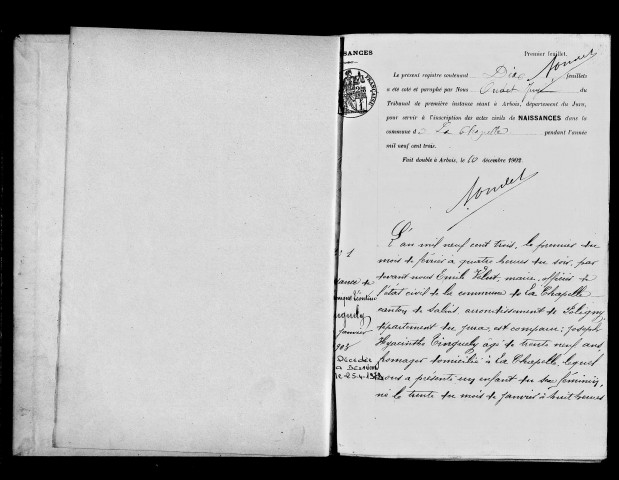 SSANCES
Premier feuillet.
Le présent registre contenant Dix feuillets
a été coté et paraphé par Nous Juge du
Tribunal de première instance séant à Arbois, département du Jura,
pour servir à l'inscription des actes civils de NAISSANCES dans la
commune d La Chapelle pendant l'année
mil neuf cent trois.
Fait double à Arbois, le 10 décembre 1902.
FRANÇAISE
L'an mil neuf cent trois, le premier du
mois de février à quatre heures du soir, par
devant nous Emile, maire, officier de
l'état civil de la commune de La Chapelle
canton de Salins, arrondissement de Poligny
département du Jura, est comparu : Joseph
Hyacinthe Tinguely âgé de trente neuf ans
fromager domicilié à La Chapelle, lequel
nous a présenté un enfant du sexe féminin,
né le trente du mois de janvier à huit heures
N° 1
ssance de
nguely
janvier
903
Décédée
a
le 25.4.19